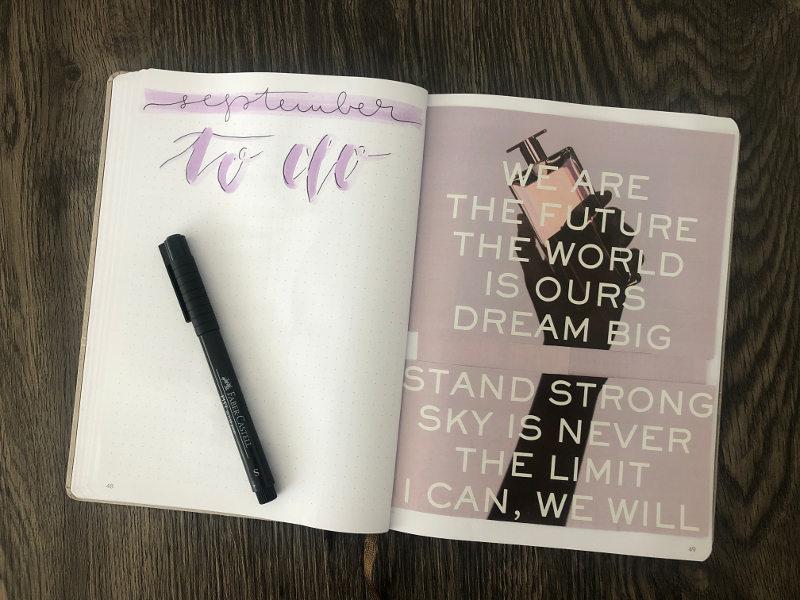 september
to do
FABER-CASTELL
S
48
WE ARE
THE FUTURE
THE WORLD
IS OURS
DREAM BIG
STAND STRONG
SKY IS NEVER
THE LIMIT
I CAN, WE WILL
49